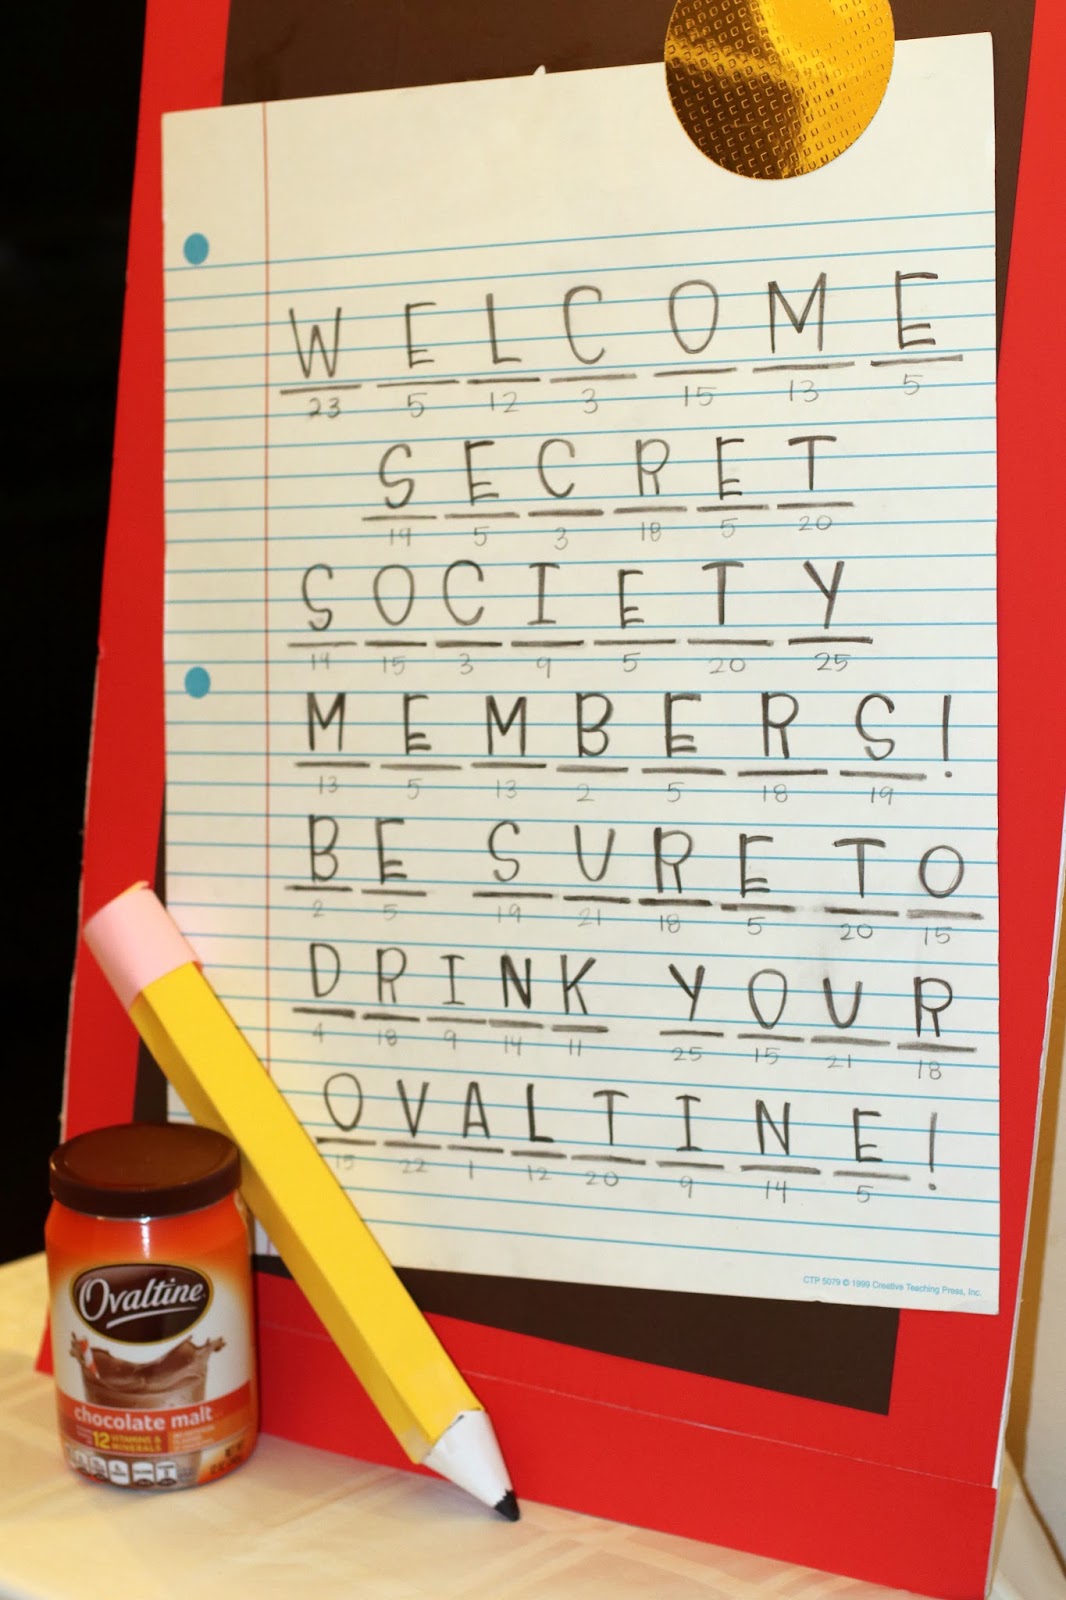 W E L C O M E
23 5 12 3 15 13 5
S E C R E T
19 5 3 18 5 20
S O C I E T Y
19 15 3 9 5 20 25
M E M B E R S !
13 5 13 2 5 18 19
B E S U R E T O
2 5 19 21 18 5 20 15
D R I N K Y O U R
4 18 9 14 11 25 15 21 18
O V A L T I N E !
15 22 1 12 20 9 14 5
CTP 5079 © 1999 Creative Teaching Press, Inc.
Ovaltine
chocolate malt
12 VITAMINS & MINERALS